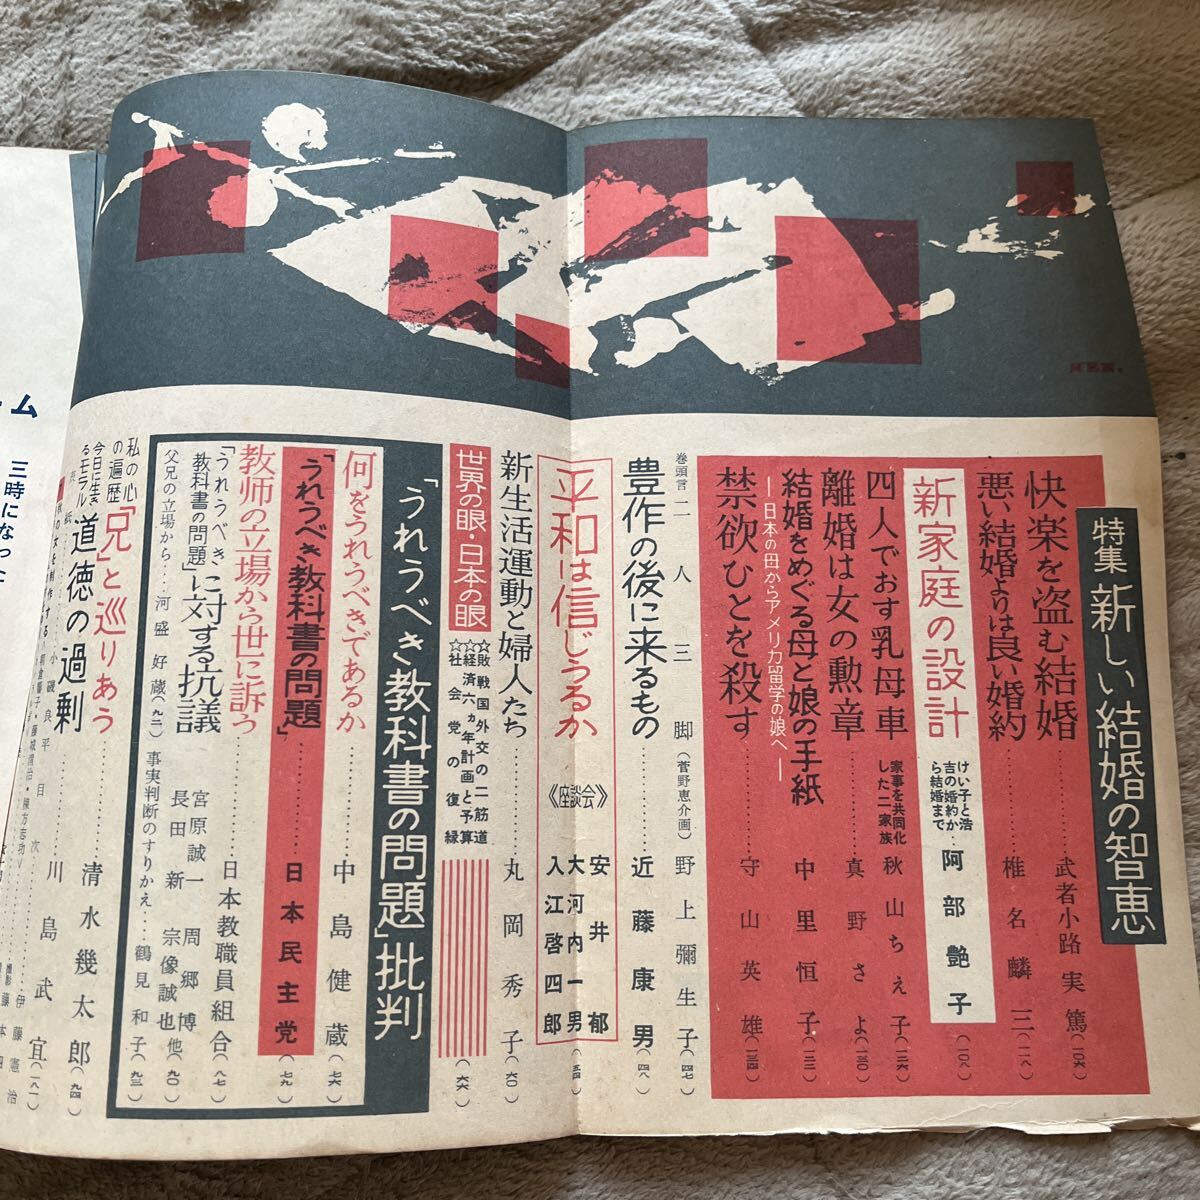 特集 新しい結婚の智恵
快楽を盗む結婚
武者小路実篤
(一〇六)
悪い結婚よりは良い婚約
椎名麟三
(一一八)
新家庭の設計
けい子と浩
吉の婚約か
ら結婚まで
阿部艶子
(一〇八)
四人でおす乳母車
家事を共同化
した二家族
秋山ちえ子
(一二六)
離婚は女の勲章
真野さよ
(一三〇)
結婚をめぐる母と娘の手紙
―日本の母からアメリカ留学の娘へ―
中里恒子
(一一三)
禁欲ひとを殺す
守山英雄
(一三四)
巻頭言
二人三脚
(菅野恵介画)
野上彌生子
(四七)
豊作の後に来るもの
近藤康男
(四八)
平和は信じうるか
《座談会》
安井郁
大河内一男
入江啓四郎
(五四)
新生活運動と婦人たち
丸岡秀子
(六〇)
世界の眼・日本の眼
☆敗戦国外交の二筋道
☆経済六ヵ年計画と予算
☆社会党の復縁
(六六)
「うれうべき教科書の問題」批判
何をうれうべきであるか
中島健蔵
(七六)
「うれうべき教科書の問題」
日本民主党
(七九)
教師の立場から世に訴う
日本教職員組合
(八七)
「うれうべき
教科書の問題」に対する抗議
宮原誠一 周郷博
長田新 宗像誠也他
(九〇)
父兄の立場から…河盛好蔵(九二)
事実判断のすりかえ…鶴見和子(九三)
私の心
の遍歴
「兄」と巡りあう
清水幾太郎
(九四)
今日に生き
るモラル
道徳の過剰
川島武宜
(一八一)
表紙
小磯良平
目次
伊藤憲治
ーム
三時になった